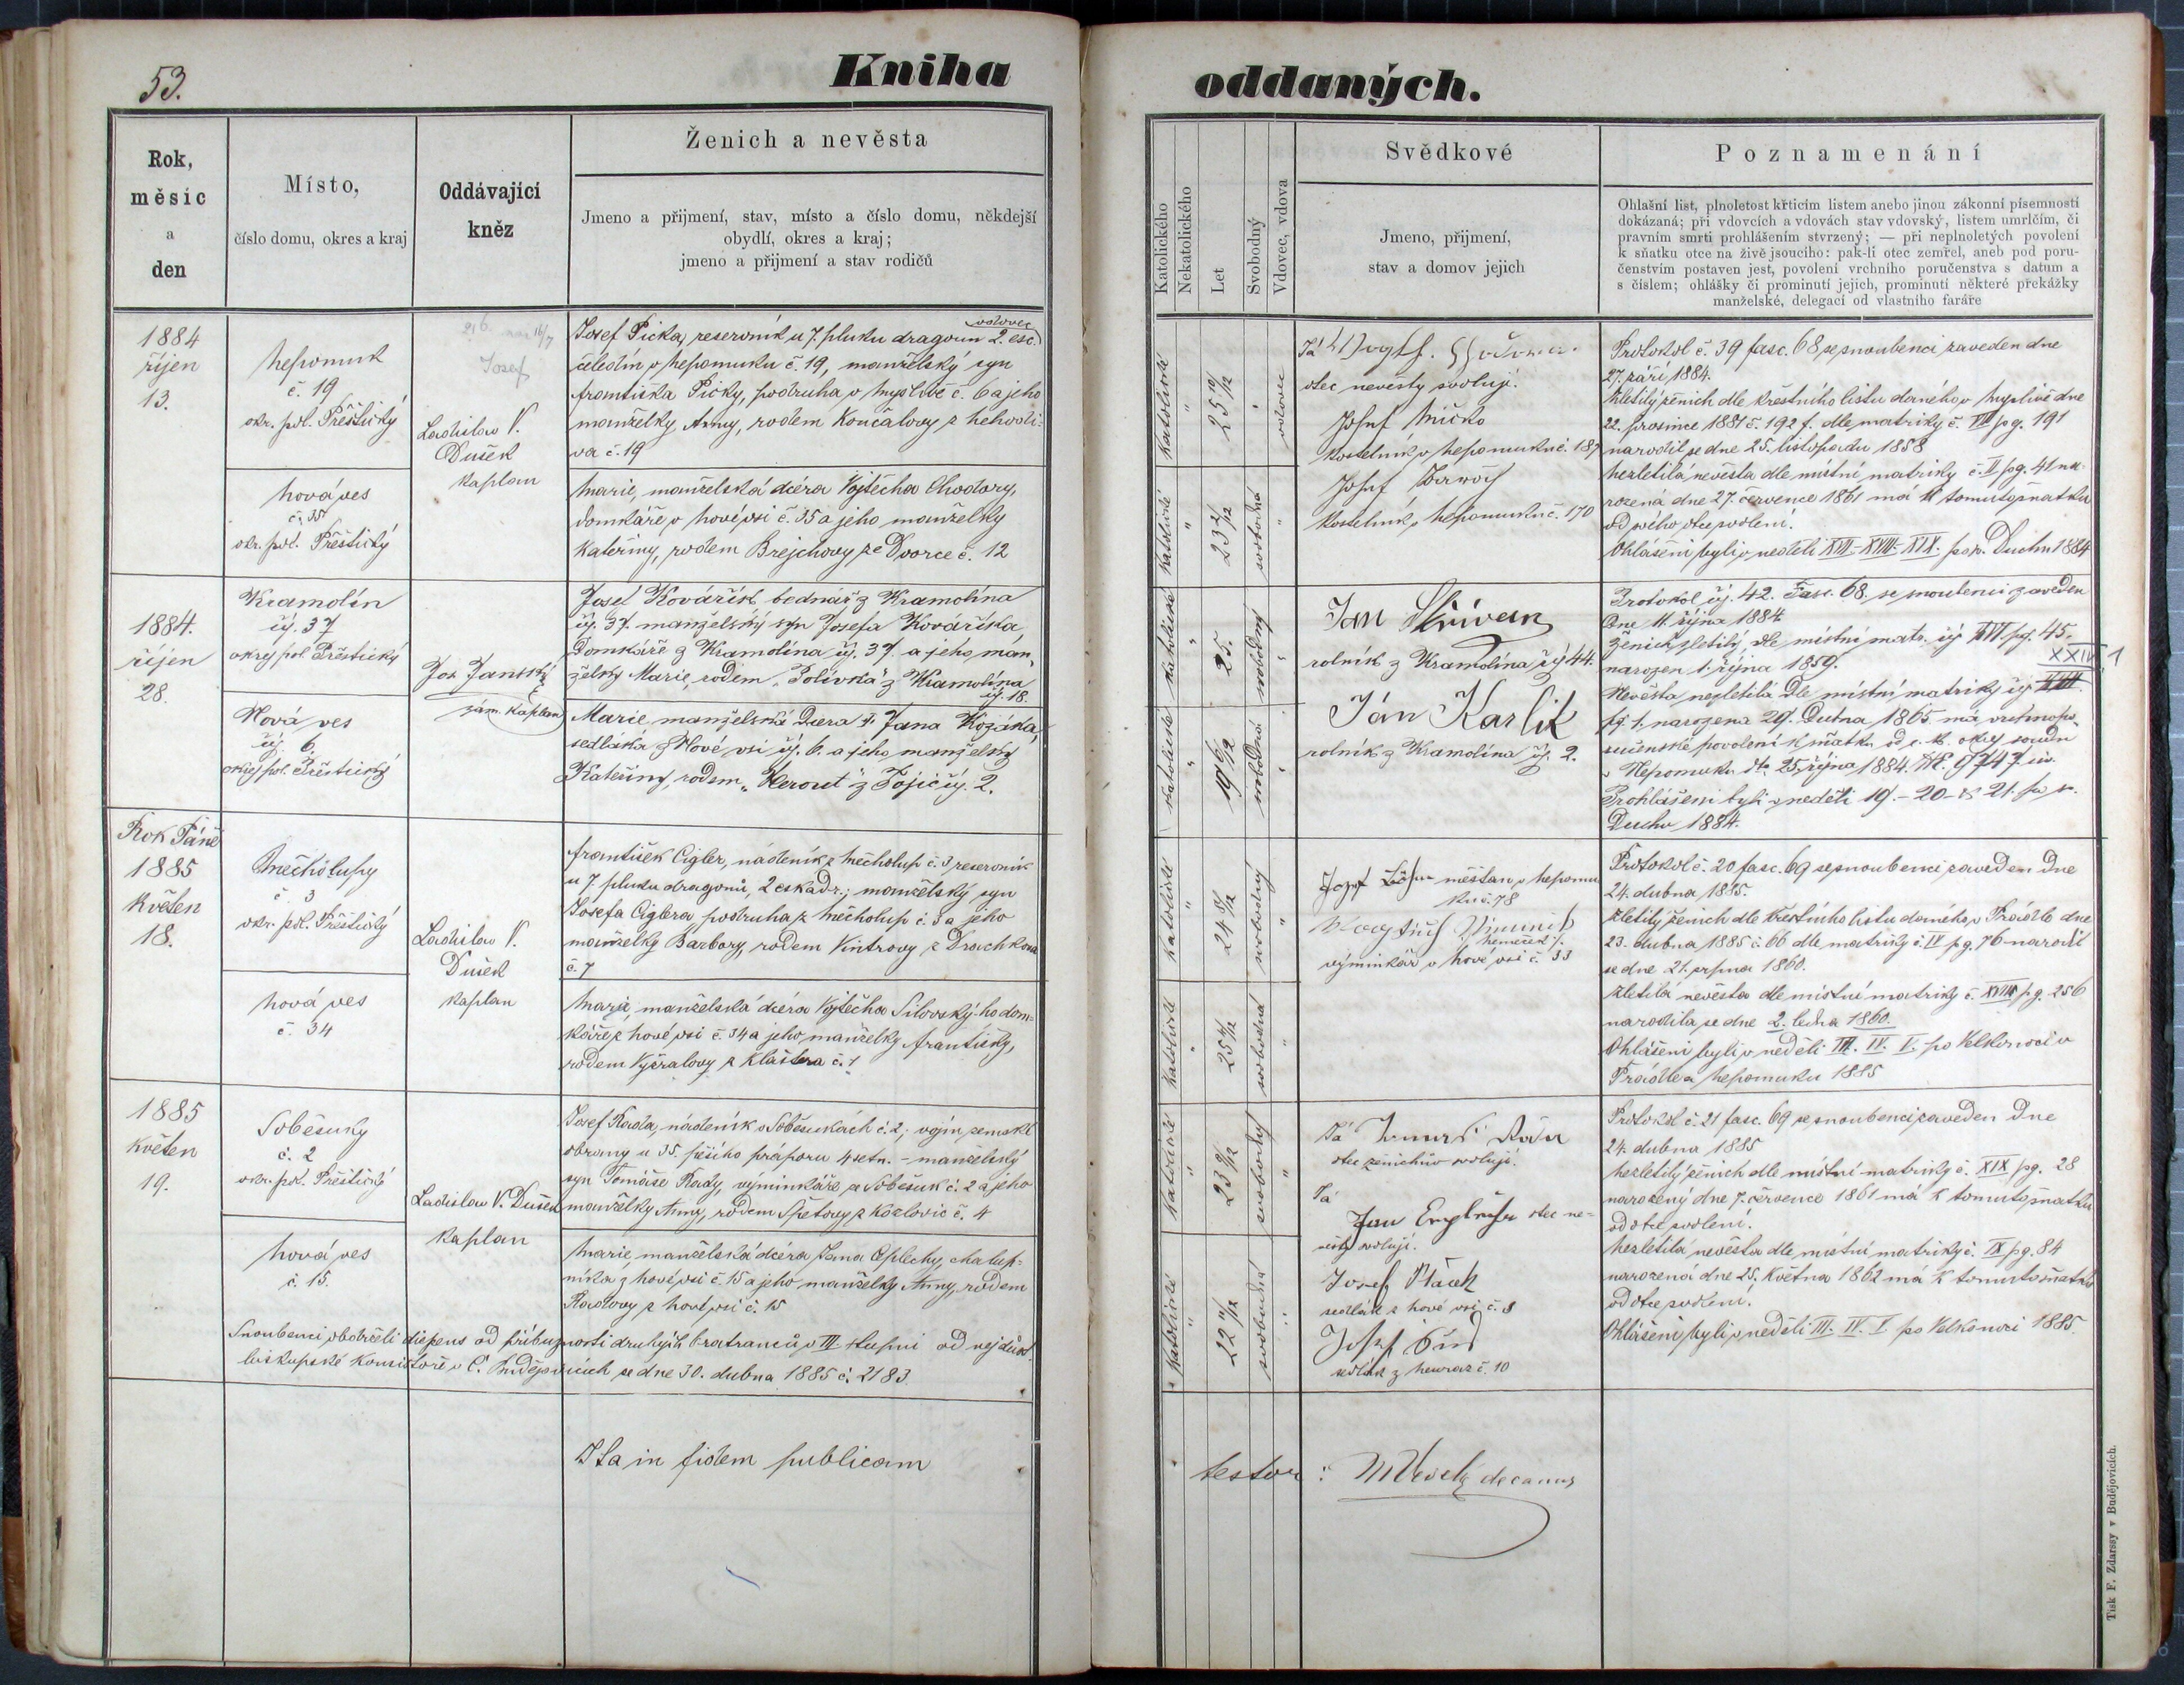 53.
Kniha
oddaných.
Rok,
měsíc
a
den
Místo,
číslo domu, okres a kraj
Oddávající
kněz
Ženich a nevěsta
Jmeno a přijmení, stav, místo a číslo domu, někdejší
obydlí, okres a kraj;
jmeno a přijmení a stav rodičů
Katolického
Nekatolického
Let
Svobodný
Vdovec, vdova
Svědkové
Jmeno, přijmení,
stav a domov jejich
Poznamenání
Ohlašní list, plnoletost křticím listem anebo jinou zákonní písemností
dokázaná; při vdovcích a vdovách stav vdovský, listem umrlčím, či
pravním smrti prohlášením stvrzený; — při neplnoletých povolení
k sňatku otce na živě jsoucího: pak-li otec zemřel, aneb pod poru-
čenstvím postaven jest, povolení vrchního poručenstva s datum a
s číslem; ohlášky či prominutí jejich, prominutí některé překážky
manželské, delegací od vlastního faráře
1884
říjen
13.
Nepomuk
č. 19
okr. pol. Přeštický
Nová ves
č. 35
okr. pol. Přeštický
Josef
Ladislav V.
Dušek
kaplan
vdovec
Josef Picka, reservník u 7. pluku dragoun 2. esc.
čeledín v Nepomuku č. 19, manželský syn
Františka Picky, podruha v Myslivě č. 6 a jeho
manželky Anny, rodem Končalovy z Nehodi-
va č. 19
Marie, manželská dcéra Vojtěcha Chodory,
domkáře v Nové vsi č. 35 a jeho manželky
Kateřiny, rodem Brejchovy ze Dvorce č. 12
katolické
"
25 10/12
vdovec
katolické
"
23 2/12
svobodná
"
Já
otec nevěsty svoluji.
Josef Mičko
kostelník v Nepomuku č. 187
Josef
kostelník v Nepomuku č. 170
Protokol č. 39 fasc. 68 se snoubenci zaveden dne
27. září 1884.
Zletilý ženich dle křestního listu daného v Myslivě dne
22. prosince 1881 č. 192 f. dle matriky č. VII pg. 191
narodil se dne 25. listopadu 1858
Nezletilá nevěsta dle místní matriky č. II pg. 41 na-
rozená dne 27. července 1861 má k tomuto sňatku
od svého otce svolení.
Ohlášeni byli v neděli XVII-XVIII-XIX. po sv. Duchu 1884
1884.
říjen
28.
Kramolín
čj. 37
okres pol. Přeštický
Nová ves
čj. 6.
okres pol. Přeštický
Jos. Janský
zám. kaplan
Josef Kovářík bednář z Kramolína
čj. 37. manželský syn Josefa Kováříka,
Domkáře z Kramolína čj. 37. a jeho man-
želky Marie, rodem „Polívka" z Kramolína
čj. 18.
Marie manželská Dcera † Jana Kozáka,
sedláka z Nové vsi čj. 6. a jeho manželky
Kateřiny, rodem „Herout" z Žojic čj. 2.
katolické
"
25.
svobodný
"
katolické
"
19 6/12
svobodná
"
Jan Skřivan
rolník z Kramolína čj 44.
Ján Karlik
rolník z Kramolína čj. 2.
Protokol čj. 42. Fasc. 68. se snoubenci zaveden
dne 11. října 1884
Ženich zletilý, dle místní matr. čj XIX pg. 45.
narozen 1. října 1859.
XXIV. 1
Nevěsta nezletilá dle místní matriky čj
pg. 1. narozena 29. Dubna 1865 má vrchnopo-
ručenské povolení k sňatku od c. k. okres soudu
v Nepomuku dto 25. října 1884. Nr. 9747 civ.
Prohlášeni byli v neděli 19. - 20 - & 21. po sv.
Duchu 1884.
Rok Páně
1885
Květen
18.
Měcholupy
č. 3
okr. pol. Přeštický
Nová ves
č. 34
Ladislav V.
Dušek
kaplan
František Cigler, nádeník z Měcholup č. 3 reservník
u 7. pluku dragonů, 2 eskadr.; manželský syn
Josefa Ciglera podruha z Měcholup č. 3 a jeho
manželky Barbory, rodem Vintrovy z Drachkova
č. 7
Marie, manželská dcéra Vojtěcha Silovský-ho dom-
káře z Nové vsi č. 34 a jeho manželky Františky,
rodem Vyčralovy z Kláštera č. 1
katolické
"
24 8/12
svobodný
"
katolické
"
25 4/12
svobodná
"
Jozef měšťan v Nepomu-
ku č. 78
Němeček
výminkář v Nové vsi č. 33
Protokol č. 20 fasc. 69 se snoubenci zaveden dne
24. dubna 1885.
Zletilý ženich dle křestního listu daného v Prádle dne
23. dubna 1885 č. 66 dle matriky č. IV pg. 76 narodil
se dne 21. srpna 1860.
Zletilá nevěsta dle místní matriky č. XVIII pg. 256
narodila se dne 2. ledna 1860.
Ohlášeni byli v neděli III. IV. V. po Velkonoci v
Prádle a Nepomuku 1885
1885
květen
19.
Soběsuky
č. 2
okr. pol. Přeštický
Nová ves
č. 15.
Ladislav V. Dušek
kaplan
Josef Rada, nádeník v Soběsukách č. 2; vojín zemské
obrany u 35. pěšího práporu 4 setn. - manželský
syn Tomáše Rady, výminkáře ze Soběsuk č. 2 a jeho
manželky Anny, rodem Špetovy z Kozlovic č. 4
Marie, manželská dcéra Jana Oplechy, chalup-
níka z Nové vsi č. 15 a jeho manželky Anny, rodem
Radovy z Nové vsi č. 15
Snoubenci obdrželi dispens od příbuznosti druhých bratranců v III stupni od nejdůst.
biskupské konsistoře v Č. Budějovicích ze dne 30. dubna 1885 č. 2183
katolické
"
23 9/12
svobodný
"
katolické
"
22 11/12
svobodná
"
Já
otec ženichův svoluji.
Já
Jan otec ne-
věsty svoluji.
Josef Ptáček
sedlák z Nové vsi č. 8
Josef
sedlák z Neuraz č. 10
Protokol č. 21 fasc. 69 se snoubenci zaveden dne
24. dubna 1885
Nezletilý ženich dle místní matriky č. XIX pg. 28
narozený dne 7. července 1861 má k tomuto sňatku
od otce svolení.
Nezletilá nevěsta dle místní matriky č. IX pg. 84
narozená dne 25. května 1862 má k tomuto sňatku
od otce svolení.
Ohlášeni byli v neděli III. IV. V. po Velkonoci 1885.
Ita in fidem publicam
testor: decanus
Tisk F. Zdarssy v Budějovicích.